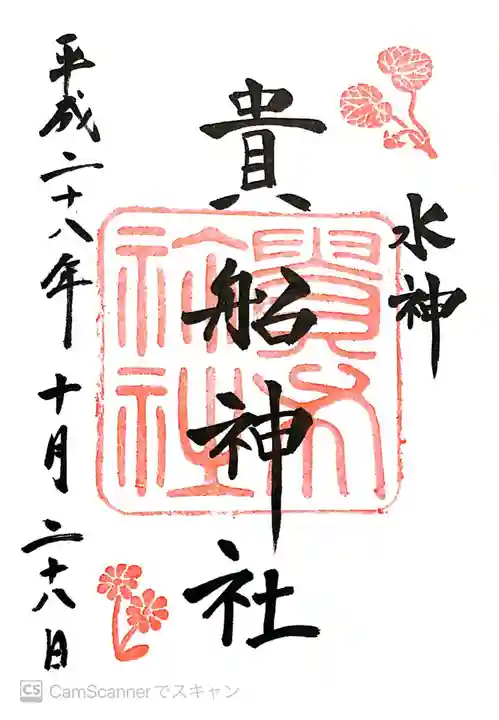 水神
貴船神社
平成二十八年 十月 二十八日
CS CamScannerでスキャン